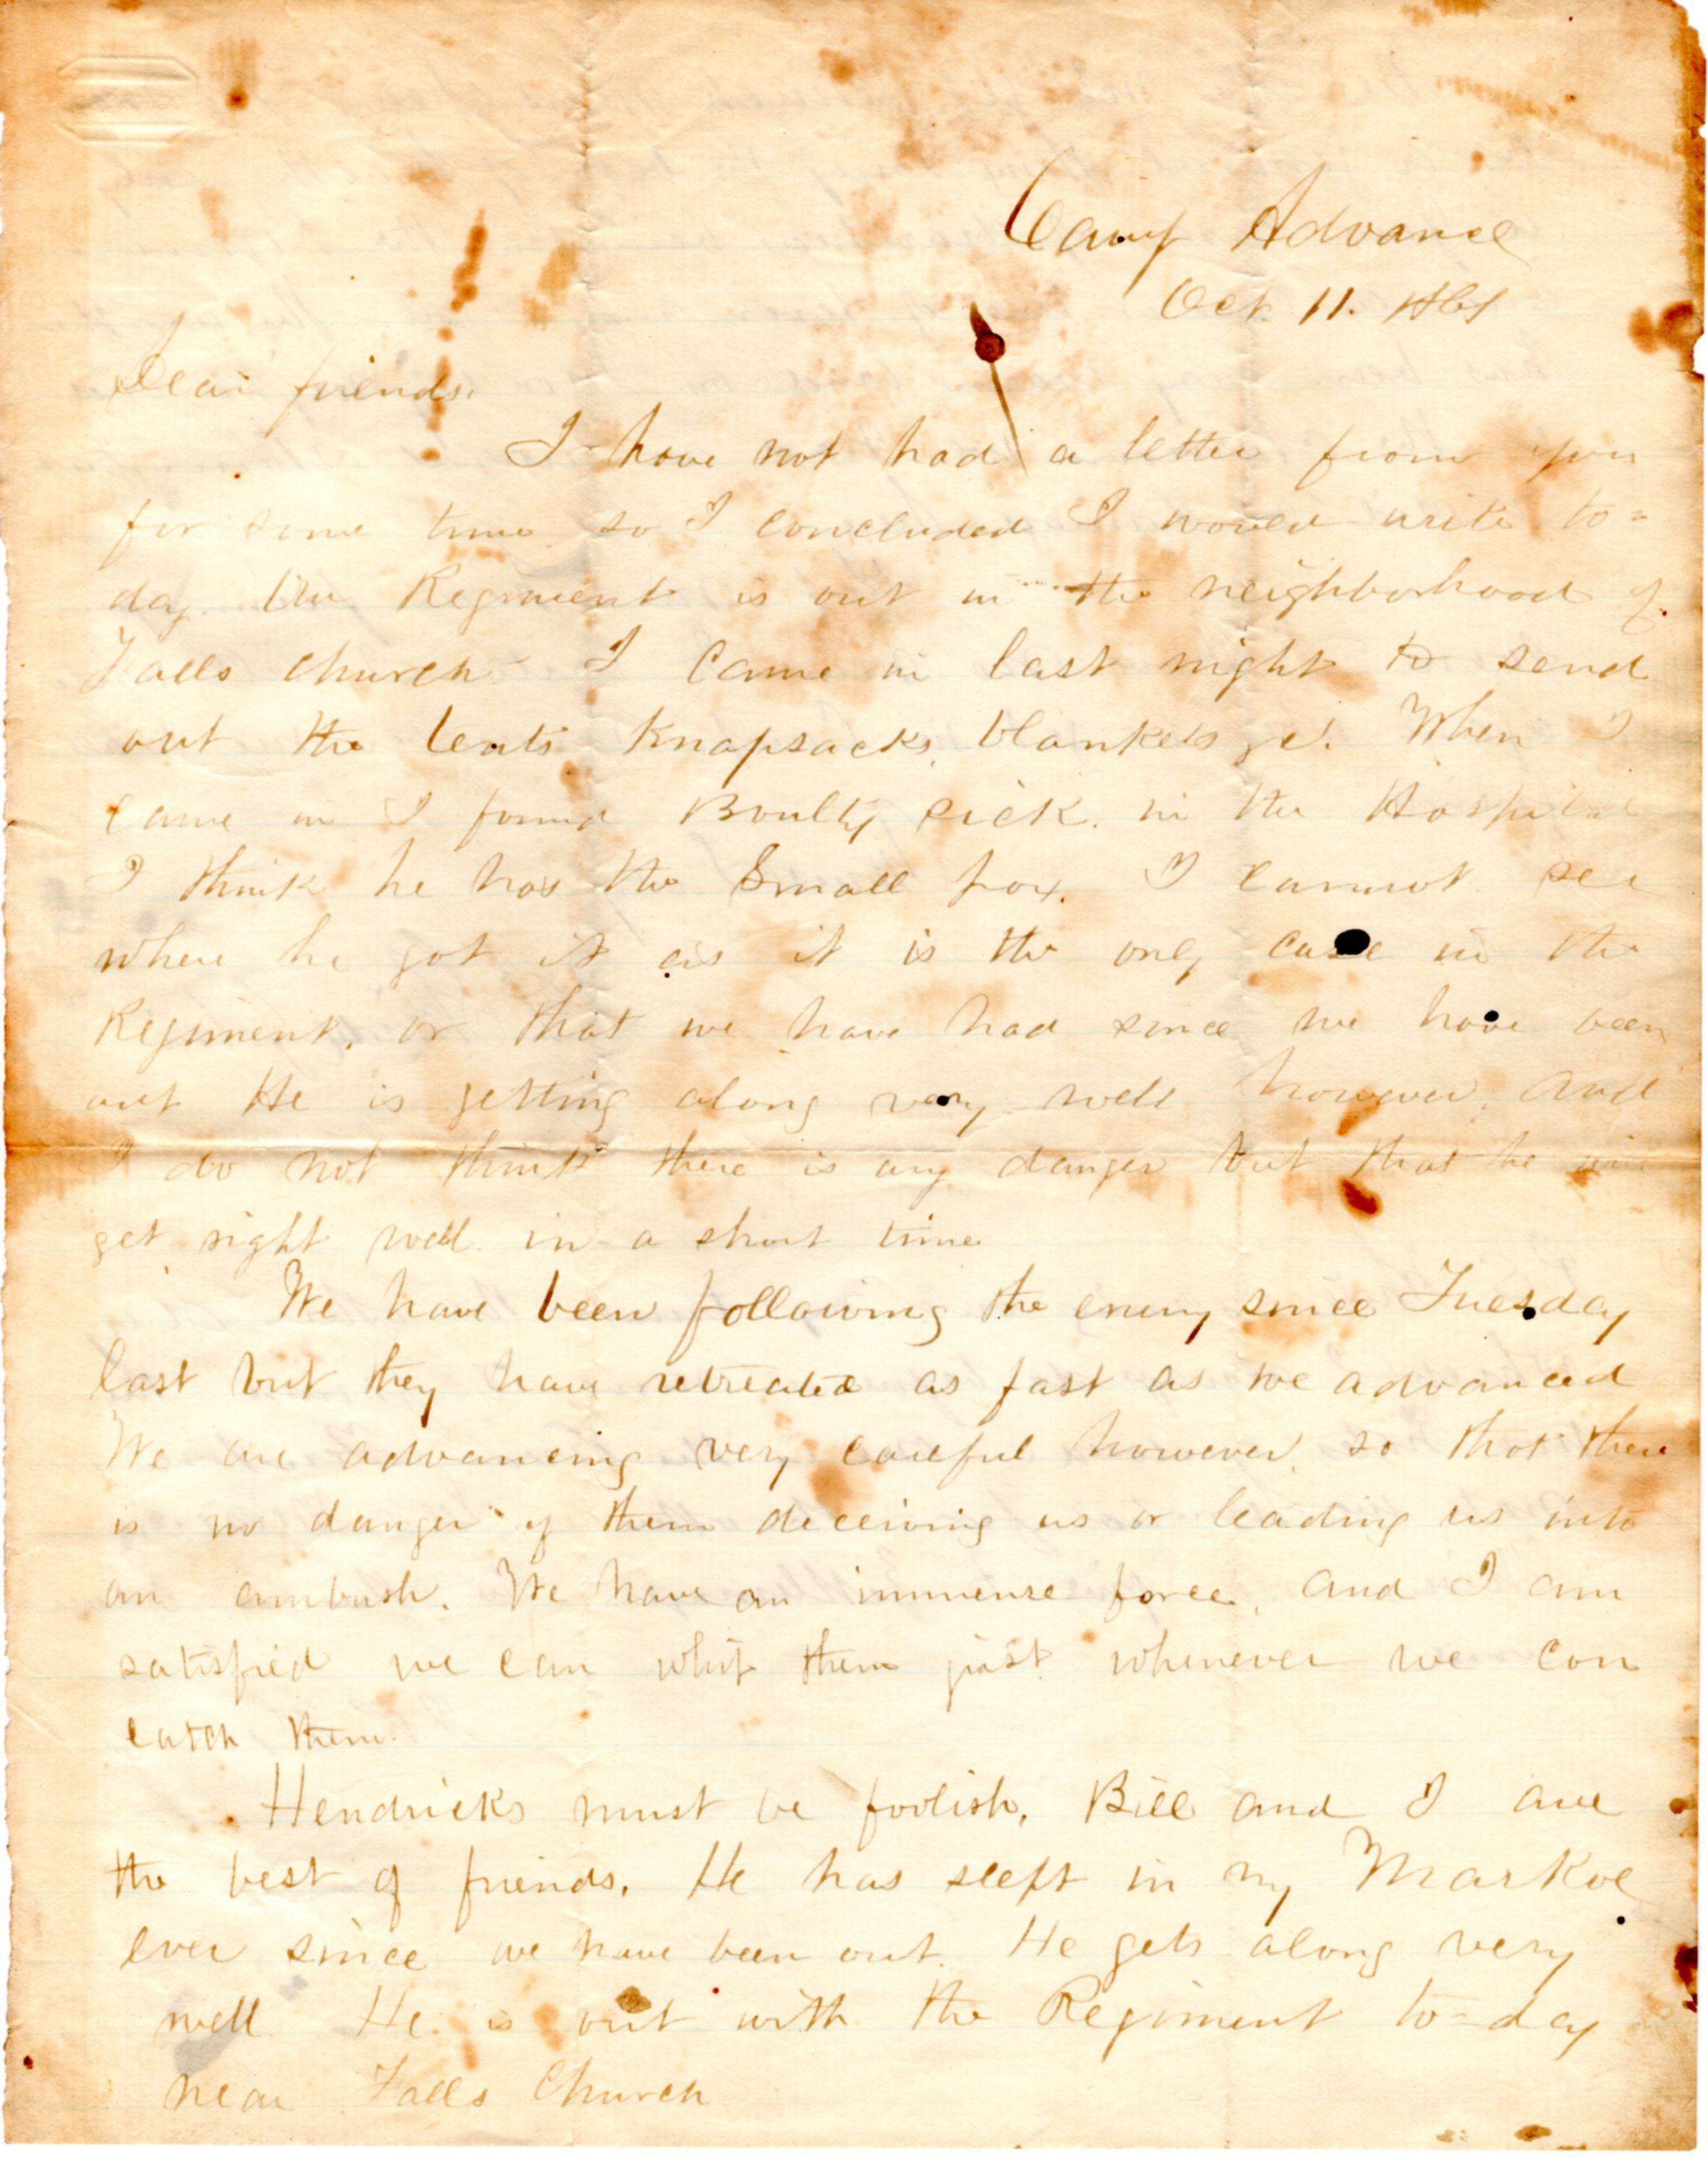 Camp Advance
Oct. 11. 1861
Dear friends.
I have not had a letter from you
for some time so I concluded I would write to=
day. Our Regiment is out in the neighborhood of
Falls church I came in last night to send
out the tents Knapsacks, blankets &c. When I
came in I found Boulty sick. in the Hospital
I think he has the Small pox. I cannot see
where he got it as it is the only case in the
Regiment. or that we have had since we have been
out He is getting along very well however, and
I do not think there is any danger but that he will
get right well in a short time
We have been following the enemy since Tuesday
last but they have retreated as fast as we advanced
We are advancing very careful however, so that there
is no danger of them deceiving us or leading us into
an ambush. We have an immense force, and I am
satisfied we can whip them just whenever we can
catch them.
Hendricks must be foolish, Bill and I are
the best of friends. He has slept in my Markee
ever since we have been out. He gets along very
well. He is out with the Regiment to=day
near Falls Church